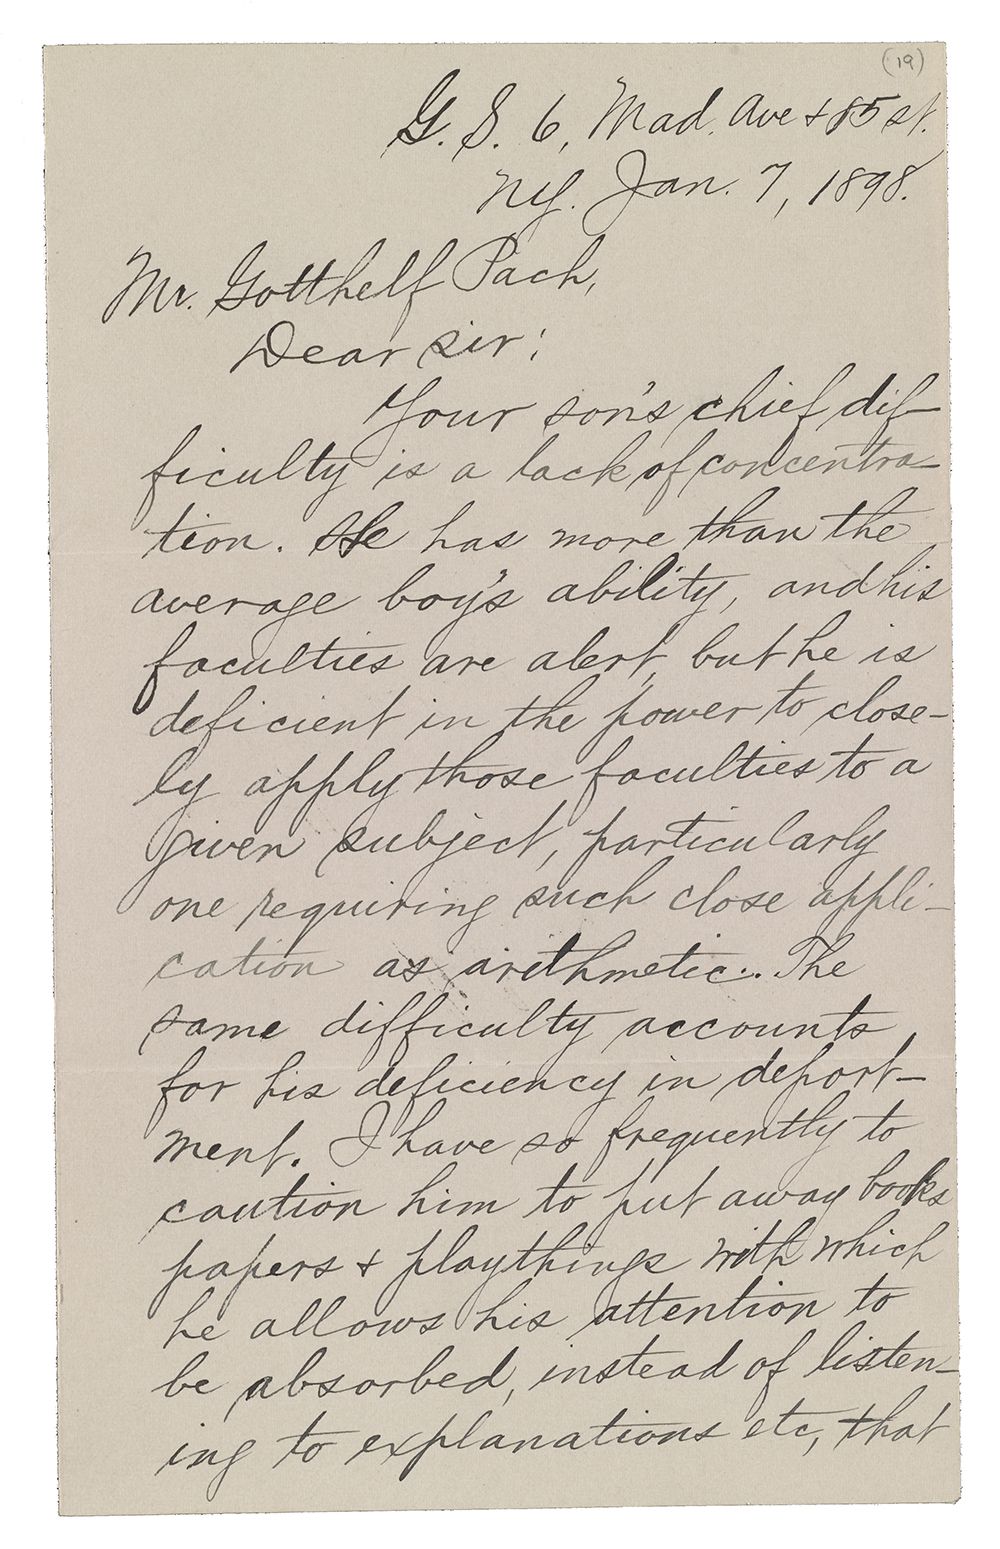 (19)
G. S. 6, Mad. Ave + 85 st.
NY. Jan. 7, 1898.
Mr. Gotthelf Pach,
Dear sir;
Your son's chief dif-
ficulty is a lack of concentra-
tion. He has more than the
average boy's ability, and his
faculties are alert, but he is
deficient in the power to close-
ly apply those faculties to a
given subject, particularly
one requiring such close appli-
cation as arithmetic. The
same difficulty accounts
for his deficiency in deport-
ment. I have so frequently to
caution him to put away books
papers + playthings with which
he allows his attention to
be absorbed, instead of listen-
ing to explanations etc, that